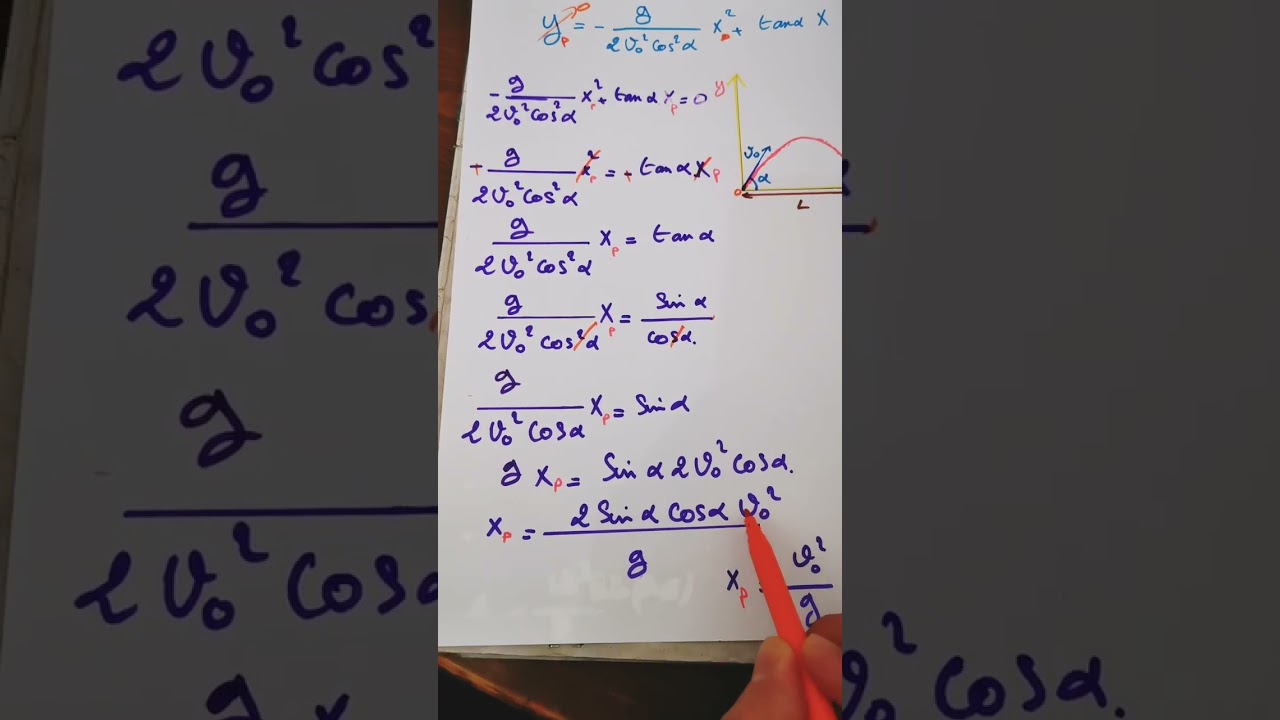 y_p = - g / 2v₀²cos²α x_p² + tanα x
- g / 2v₀²cos²α x_p² + tanα x_p = 0
+ g / 2v₀²cos²α x_p² = + tanα x_p
g / 2v₀²cos²α x_p = tanα
g / 2v₀²cos²α x_p = Sinα / cosα.
g / 2v₀²cosα x_p = Sinα
g x_p = Sinα 2v₀²cosα.
x_p = 2 Sinα cosα v₀² / g
x_p = v₀² / g
y
v₀
α
o
L